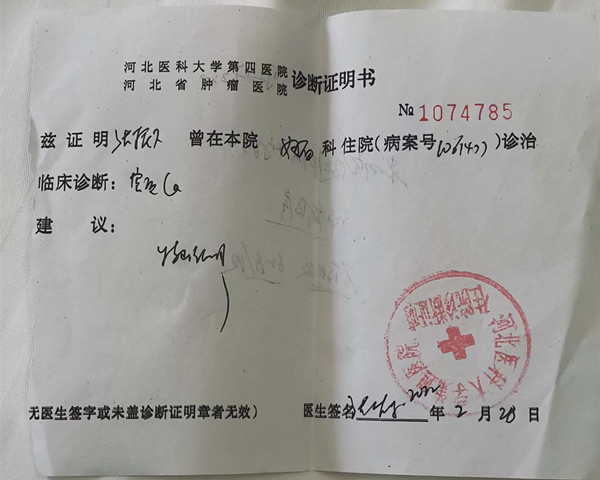 河北医科大学第四医院
河北省肿瘤医院
诊断证明书
№ 1074785
兹证明 曾在本院 科住院(病案号 )诊治
临床诊断: Ca
建 议:
特此证明
河北医科大学第四医院
住院诊断证明章
无医生签字或未盖诊断证明章者无效)
医生签名 2022 年 2 月 28 日